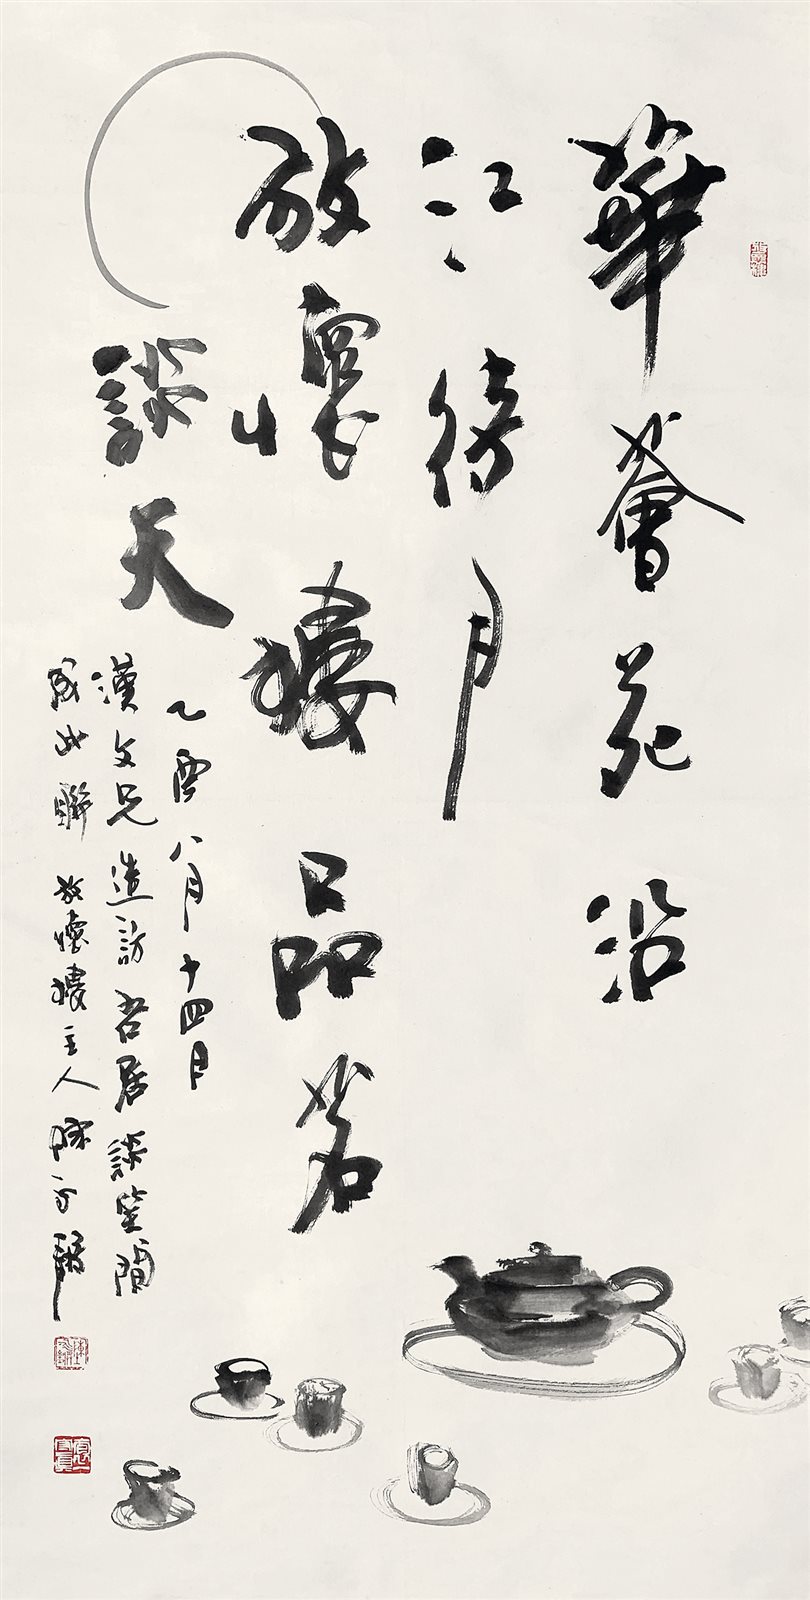 華薈苑沿
江待月
放懷樓品茗
談天
乙酉八月十四日
漢文兄造訪吾居談笑間
成此聯 放懷樓主人陳永鏘